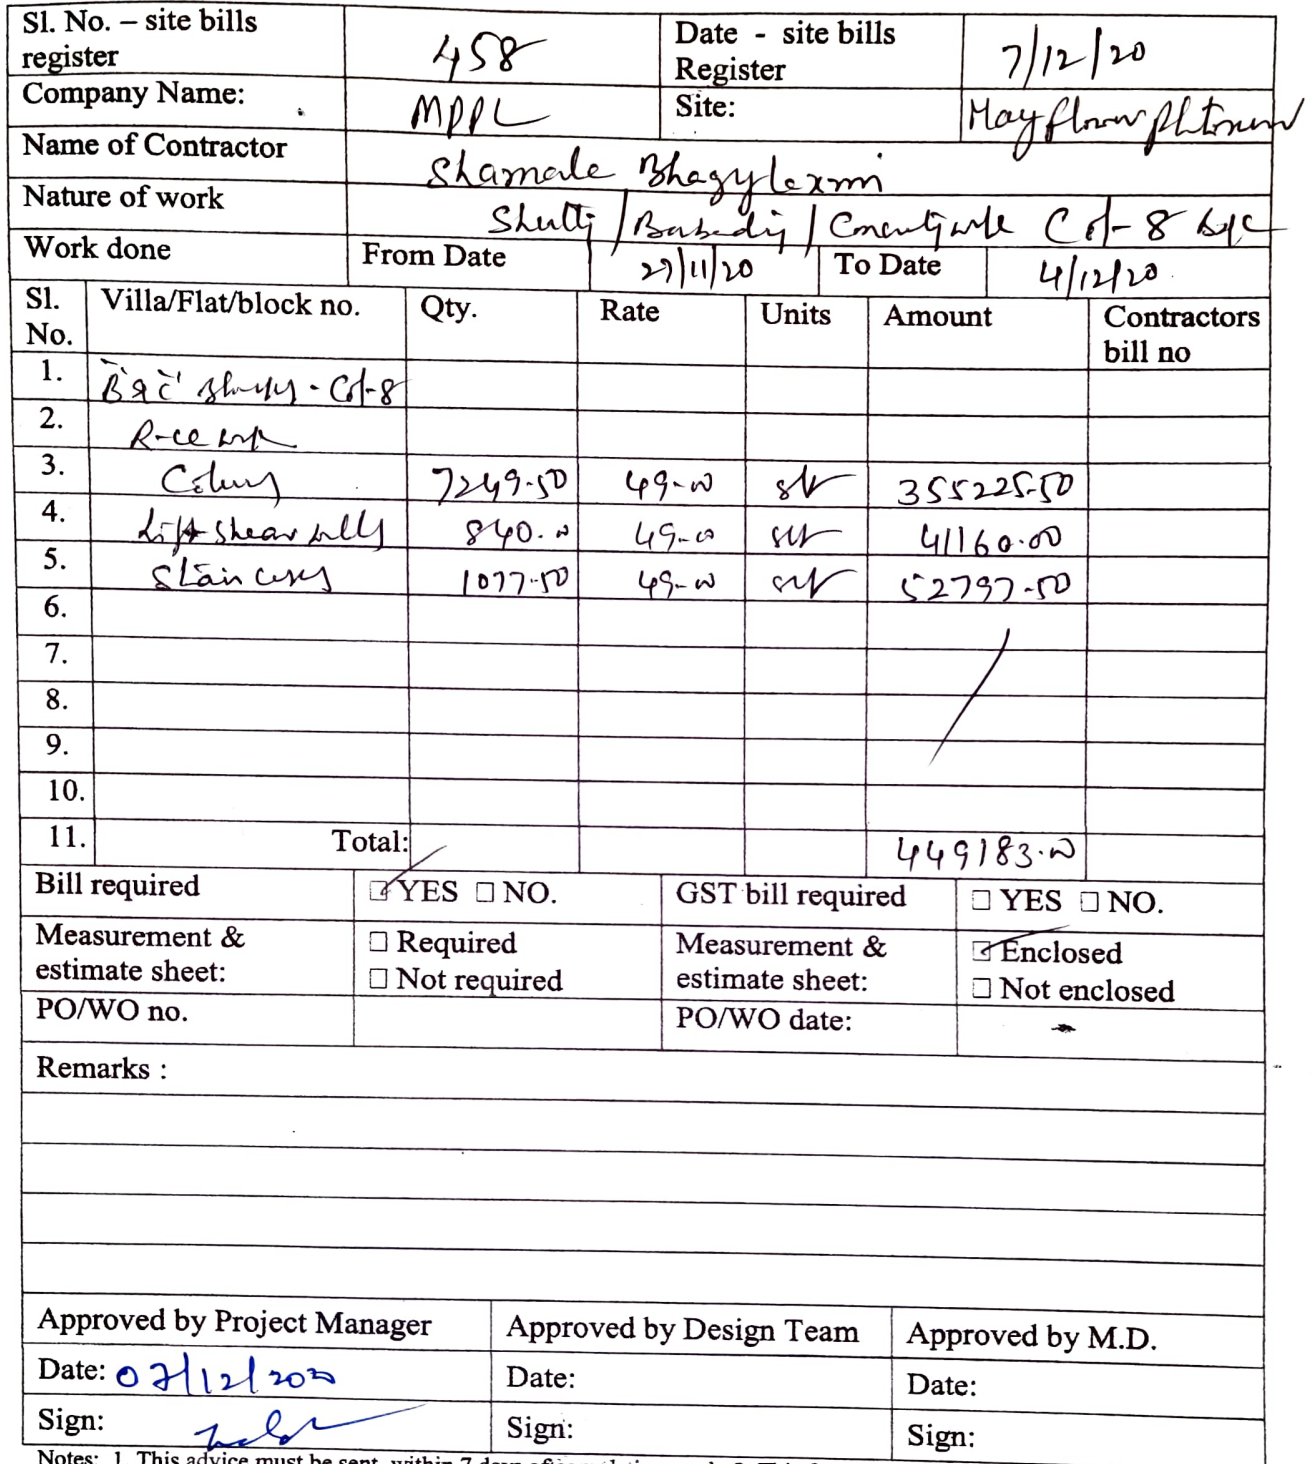 Sl. No. – site bills register 458 Date - site bills Register 7/12/20
Company Name: MPPL Site: Mayflower
Name of Contractor Shamala Bhagylaxmi
Nature of work
Work done From Date 27/11/20 To Date 4/12/20
Sl. No. Villa/Flat/block no. Qty. Rate Units Amount Contractors bill no
1. B & C
2.
3. 7249-50 49-00 355225-50
4. Lift shear walls 840.00 49-00 41160.00
5. Stair cases 1077-50 49-00 52797-50
6.
7.
8.
9.
10.
11. Total: 449183.00
Bill required ☑ YES ☐ NO. GST bill required ☐ YES ☐ NO.
Measurement & estimate sheet: ☐ Required ☐ Not required Measurement & estimate sheet: ☑ Enclosed ☐ Not enclosed
PO/WO no. PO/WO date:
Remarks :
Approved by Project Manager Approved by Design Team Approved by M.D.
Date: 07/12/2020 Date: Date:
Sign: Sign: Sign:
Notes: 1. This advice must be sent within 7 days